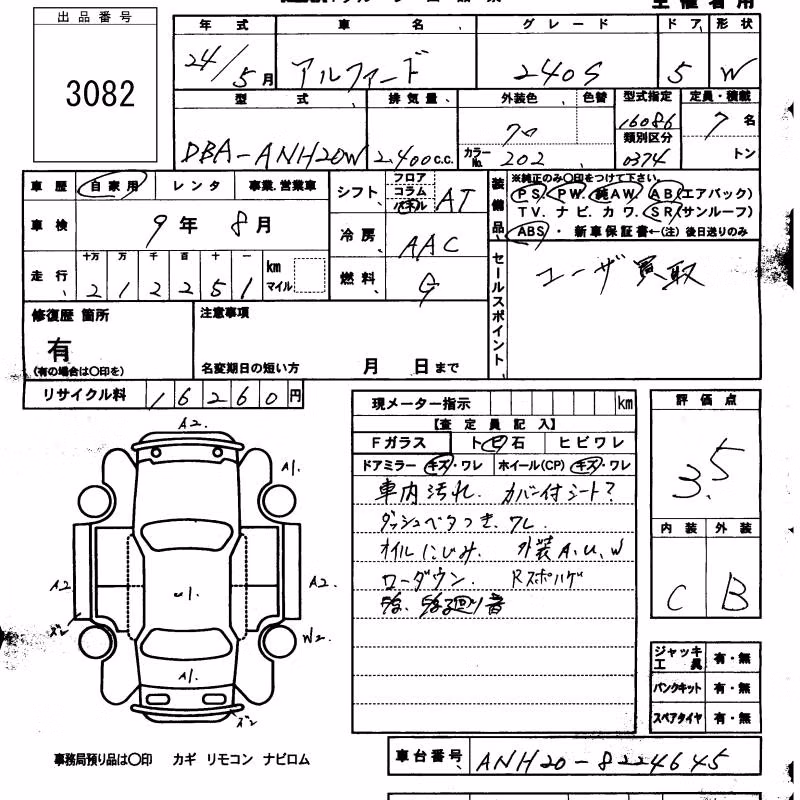 出品番号
3082
年式 車名 グレード ドア 形状
24/5月 アルファード 240S 5 W
型式 排気量 外装色 色替 型式指定 定員・積載
16086 7名
類別区分
DBA-ANH20W 2,400c.c. クロ カラーNo. 202 0374 トン
車歴 自家用 レンタ 事業.営業車
シフト フロア コラム パネル AT
車検 9年 8月
冷房 AAC
走行 十万 万 千 百 十 一 km マイル
2 1 2 2 5 1
燃料 G
装備品
※純正のみ〇印をつけて下さい。
PS. PW. 純AW. AB(エアバック)
TV. ナビ. カワ. SR(サンルーフ)
ABS・新車保証書←(注)後日送りのみ
セールスポイント
ユーザ買取
修復歴 箇所
有
(有の場合は〇印を)
注意事項
名変期日の短い方 月 日まで
リサイクル料 16260円
現メーター指示 km
【査定員記入】
Fガラス トビ石 ヒビワレ
ドアミラー キズ・ワレ ホイール(CP) キズ・ワレ
車内汚れ. カバー付シート?
ダッシュベタつき. ワレ
オイルにじみ. 外装A.U.W
ローダウン. Rスポハゲ
評価点
3.5
内装 外装
C B
ジャッキ工具 有・無
パンクキット 有・無
スペアタイヤ 有・無
A2.
A1.
A2
A2.
U1.
ズレ
W2
A1.
ズレ
事務局預り品は〇印 カギ リモコン ナビロム
車台番号 ANH20-8224645